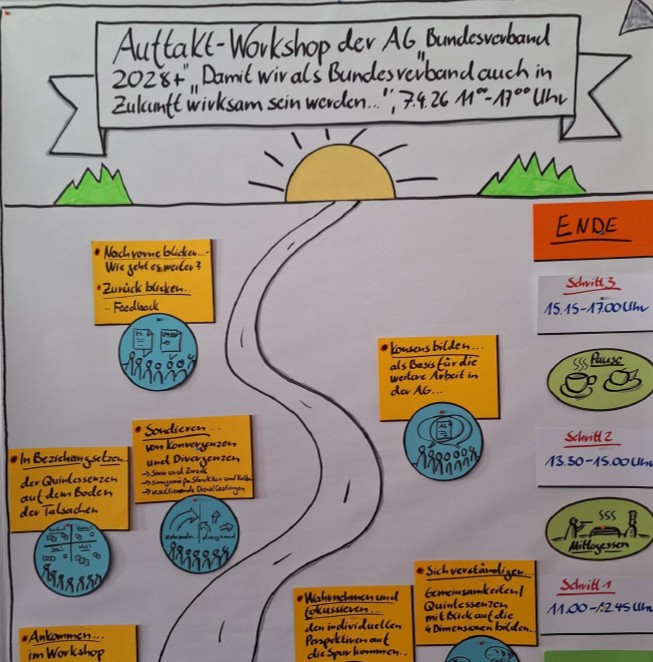 Auftakt-Workshop der AG „Bundesverband
2028+" „Damit wir als Bundesverband auch in
Zukunft wirksam sein werden...", 7.4.26 11⁰⁰-17⁰⁰ Uhr
ENDE
Schritt 3
15.15-17.00 Uhr
Pause
Schritt 2
13.30-15.00 Uhr
Mittagessen
Schritt 1
11.00-12.45 Uhr
• Nach vorne blicken...
Wie geht es weiter?
• Zurück blicken...
- Feedback
• Konsens bilden...
als Basis für die
weitere Arbeit in
der AG...
• Sondieren...
von Konvergenzen
und Divergenzen
→ Sinn und Zweck
→ Struktur und
→
• In Beziehung setzen
der Quintessenzen
auf dem Boden
der Tatsachen
• Sich verständigen...
Gemeinsamkeiten/
Quintessenzen
mit Blick auf die
4 Dimensionen bilden...
• Wahrnehmen und
fokussieren...
den individuellen
Perspektiven auf
die Spur kommen...
• Ankommen...
im Workshop